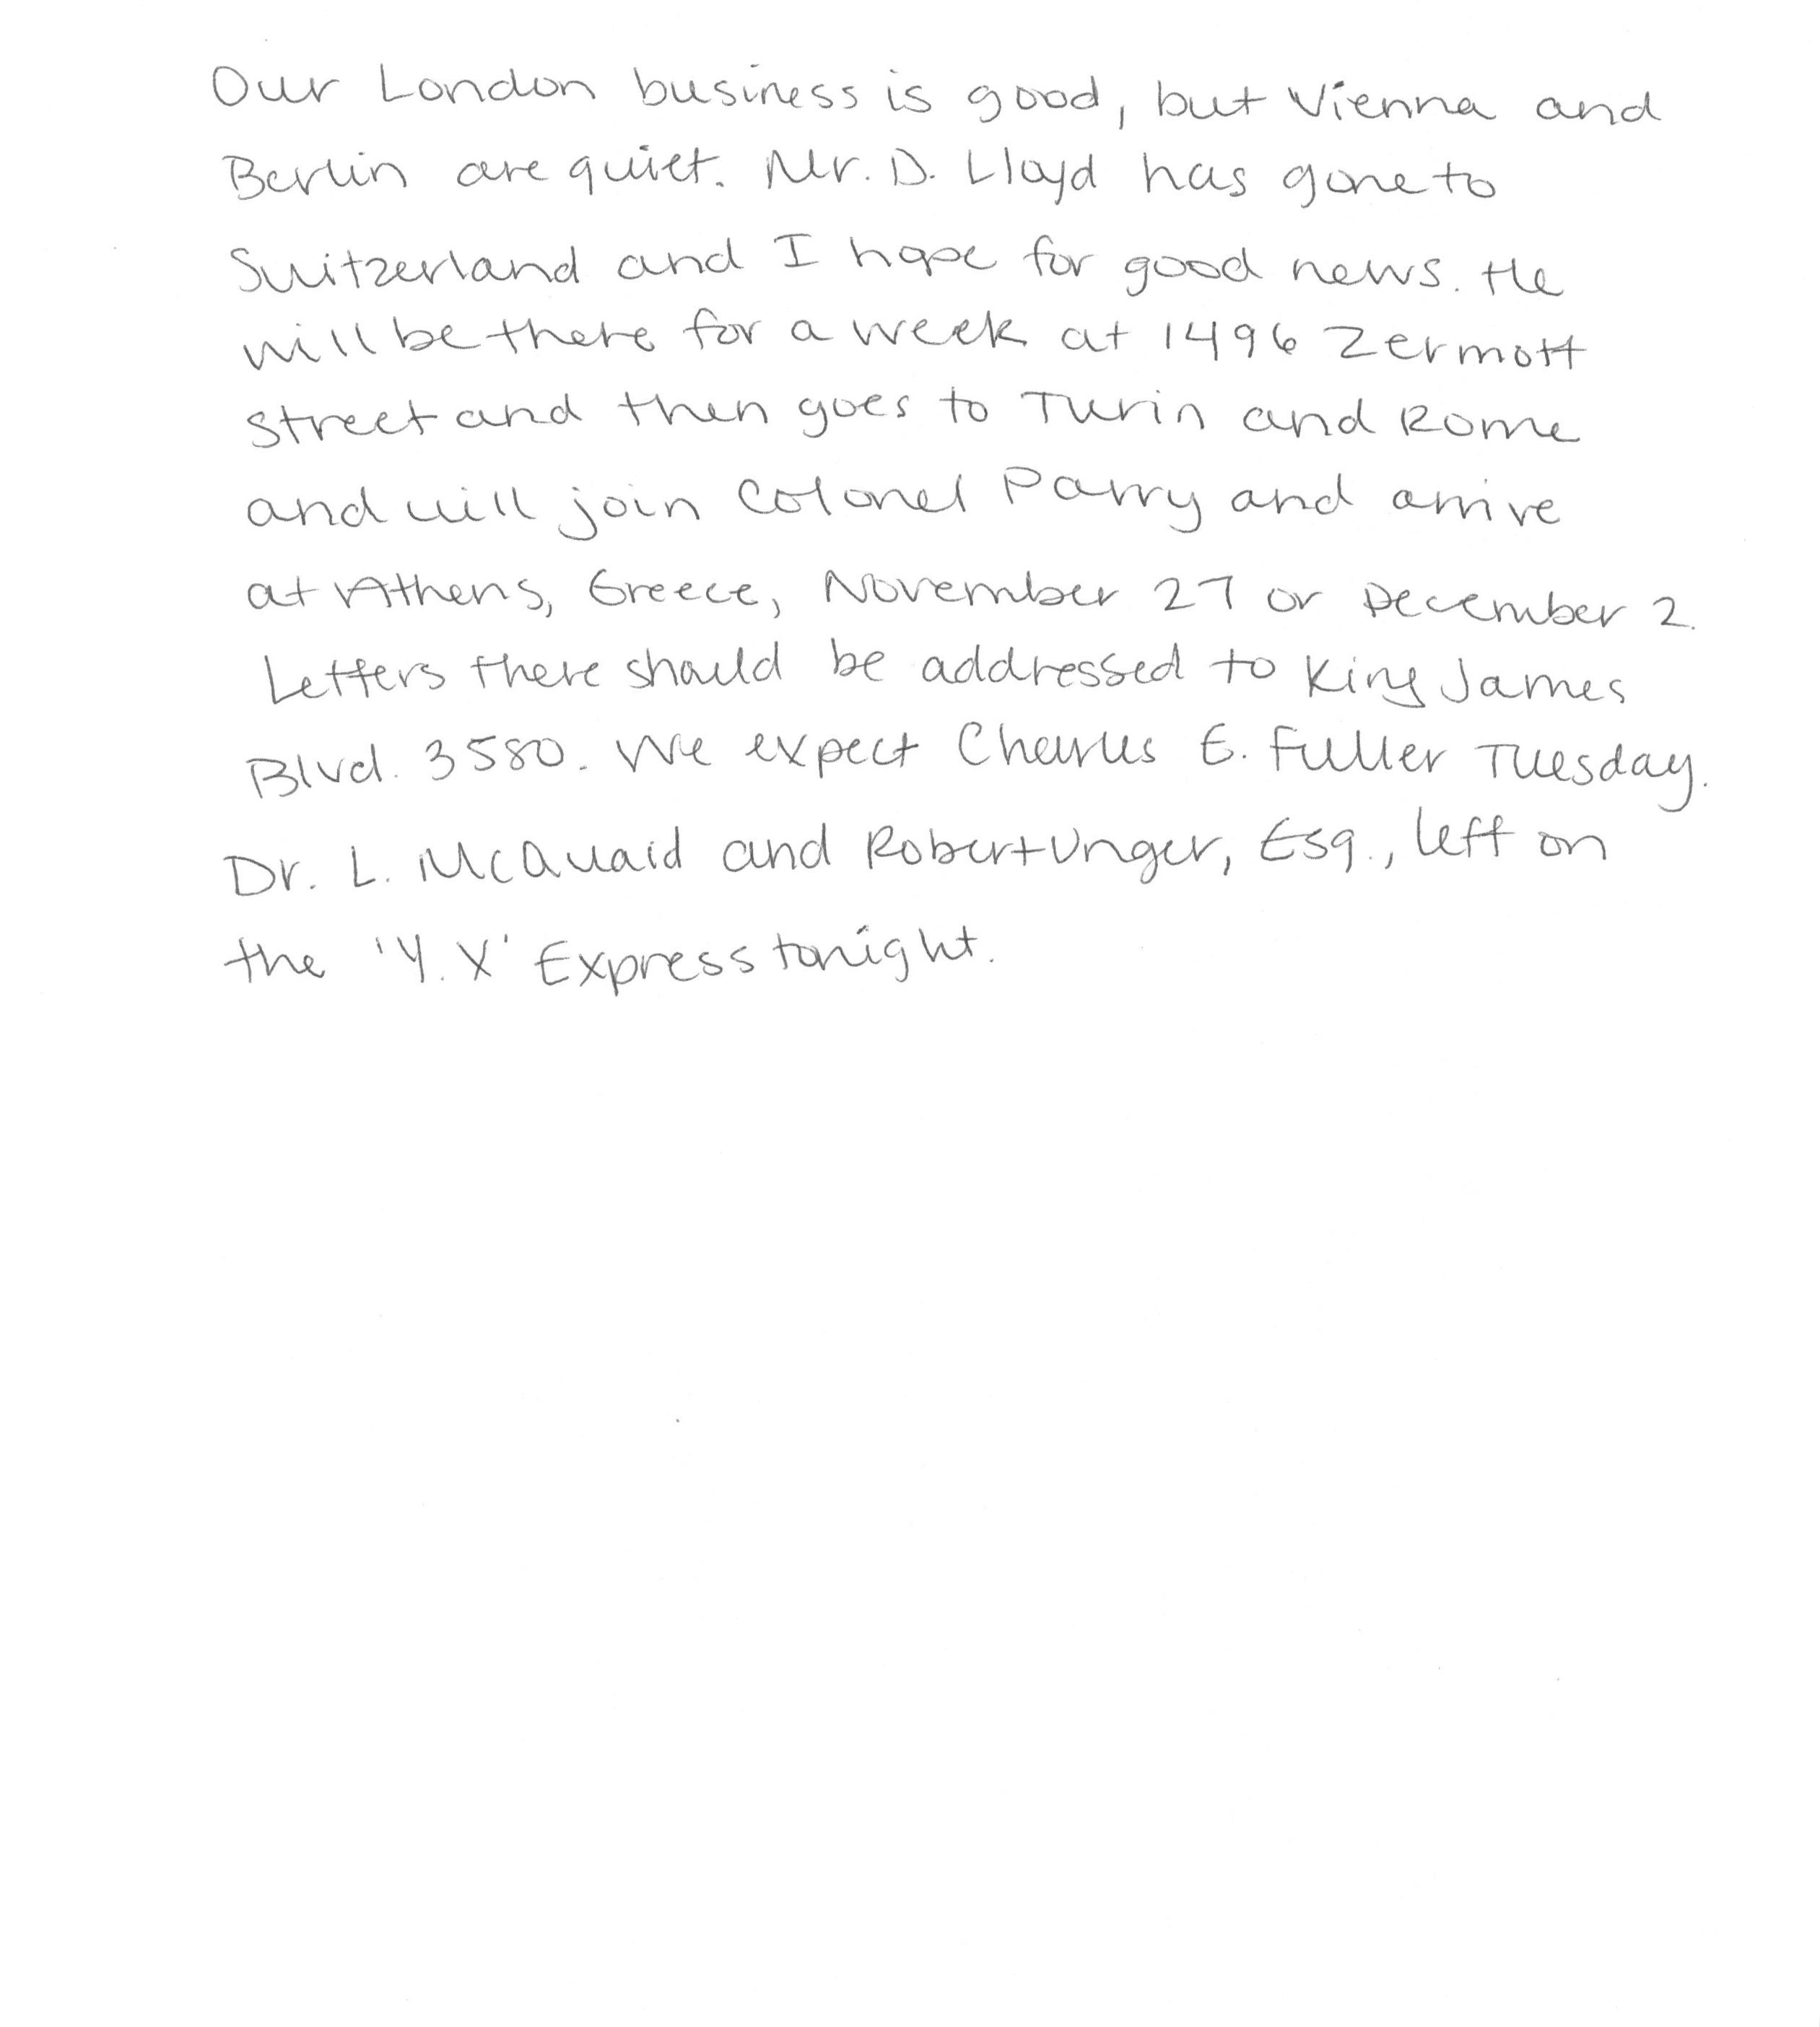 Our London business is good, but Vienna and
Berlin are quiet. Mr. D. Lloyd has gone to
Switzerland and I hope for good news. He
will be there for a week at 1496 Zermott
street and then goes to Turin and Rome
and will join Colonel Parry and arrive
at Athens, Greece, November 27 or December 2.
Letters there should be addressed to King James
Blvd. 3580. We expect Charles E. Fuller Tuesday.
Dr. L. McQuaid and Robert Unger, Esq., left on
the 'Y.X' Express tonight.